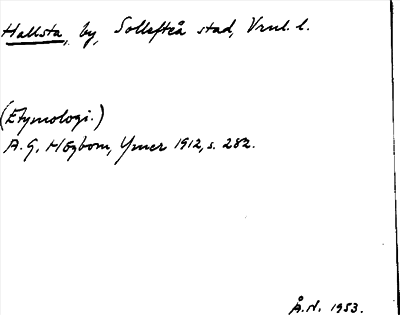 Hallsta, by, Sollefteå stad, Vrnl. l.
(Etymologi.)
A. G. Högbom, Ymer 1912, s. 282.
Å. N. 1953.